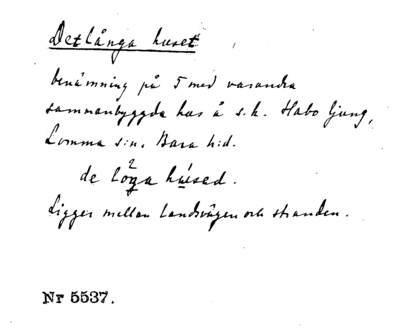 Det långa huset
benämning på 5 med varandra
sammanbyggda hus å s.k. Habo ljung,
Lomma s:n, Bara h:d.
de lo²ŋa húsad.
Ligger mellan landsvägen och stranden.
Nr 5537.